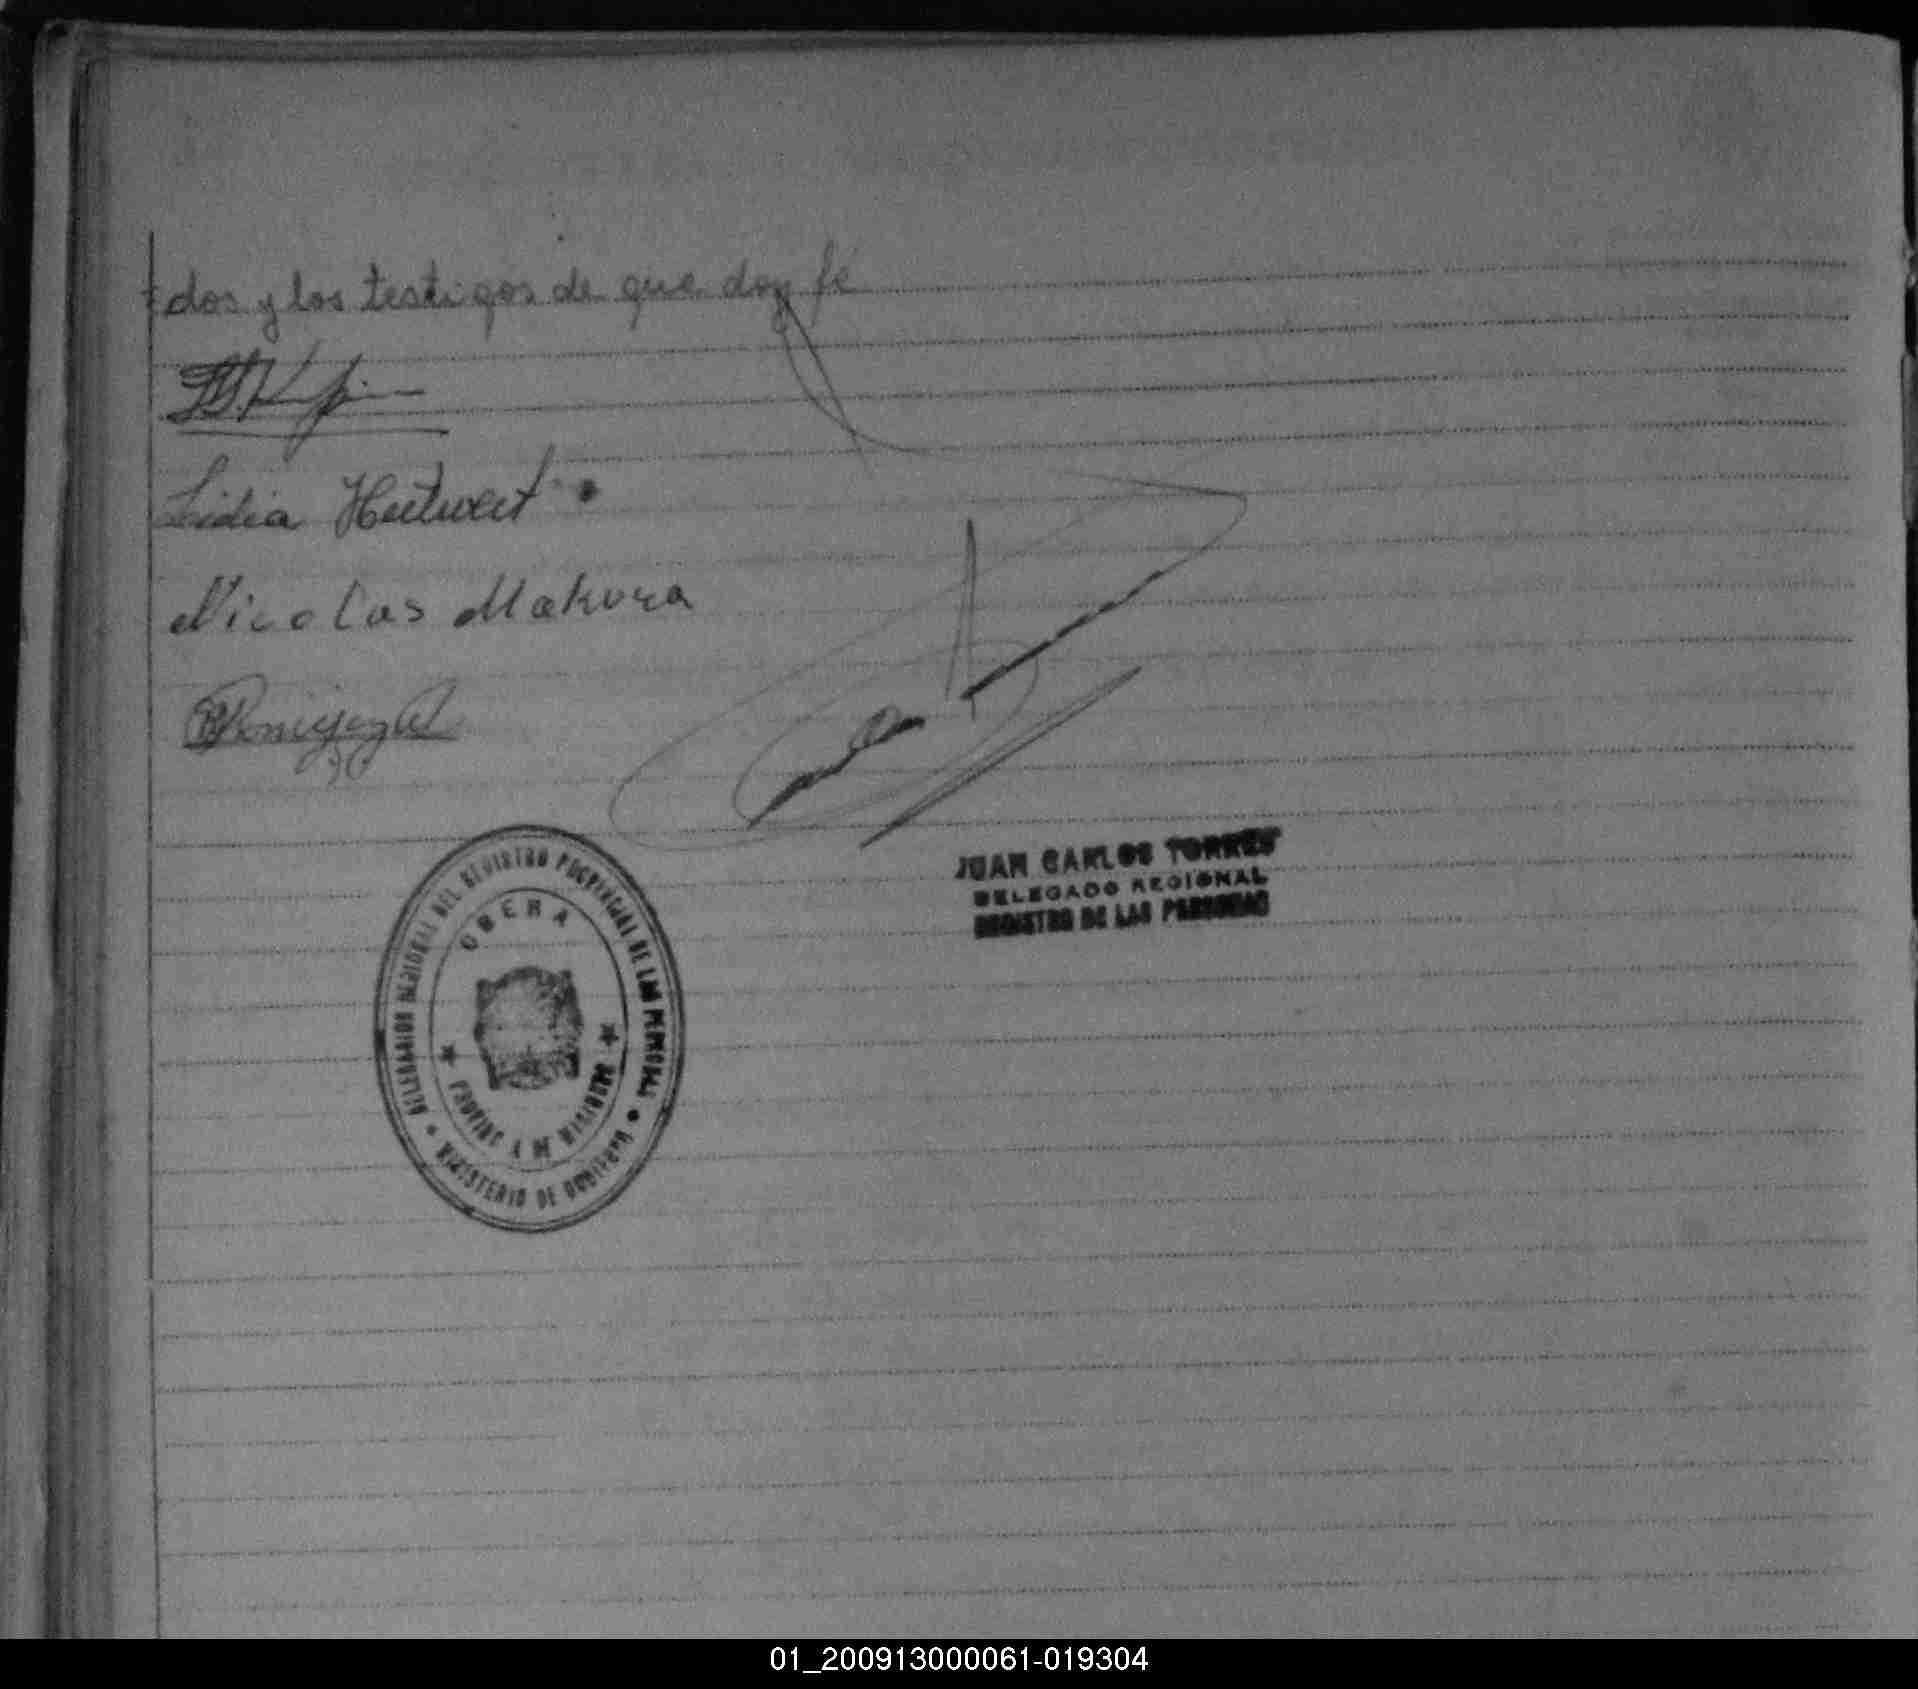 dos y los testigos de que doy fé
Lidia
Nicolas Makura
JUAN CARLOS TORRES
DELEGADO REGIONAL
REGISTRO DE LAS PERSONAS
DELEGACION REGIONAL DEL REGISTRO PROVINCIAL DE LAS PERSONAS
OBERA
PROVINCIA DE MISIONES
MINISTERIO DE GOBIERNO
01_200913000061-019304